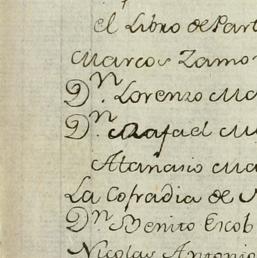 el Libro de Part
Marcos Zamo
Dⁿ. Lorenzo Ma
Dⁿ. Rafael M
Atanasio Ma
La Cofradia de N
Dⁿ. Benito Escob
Nicolas Antonio